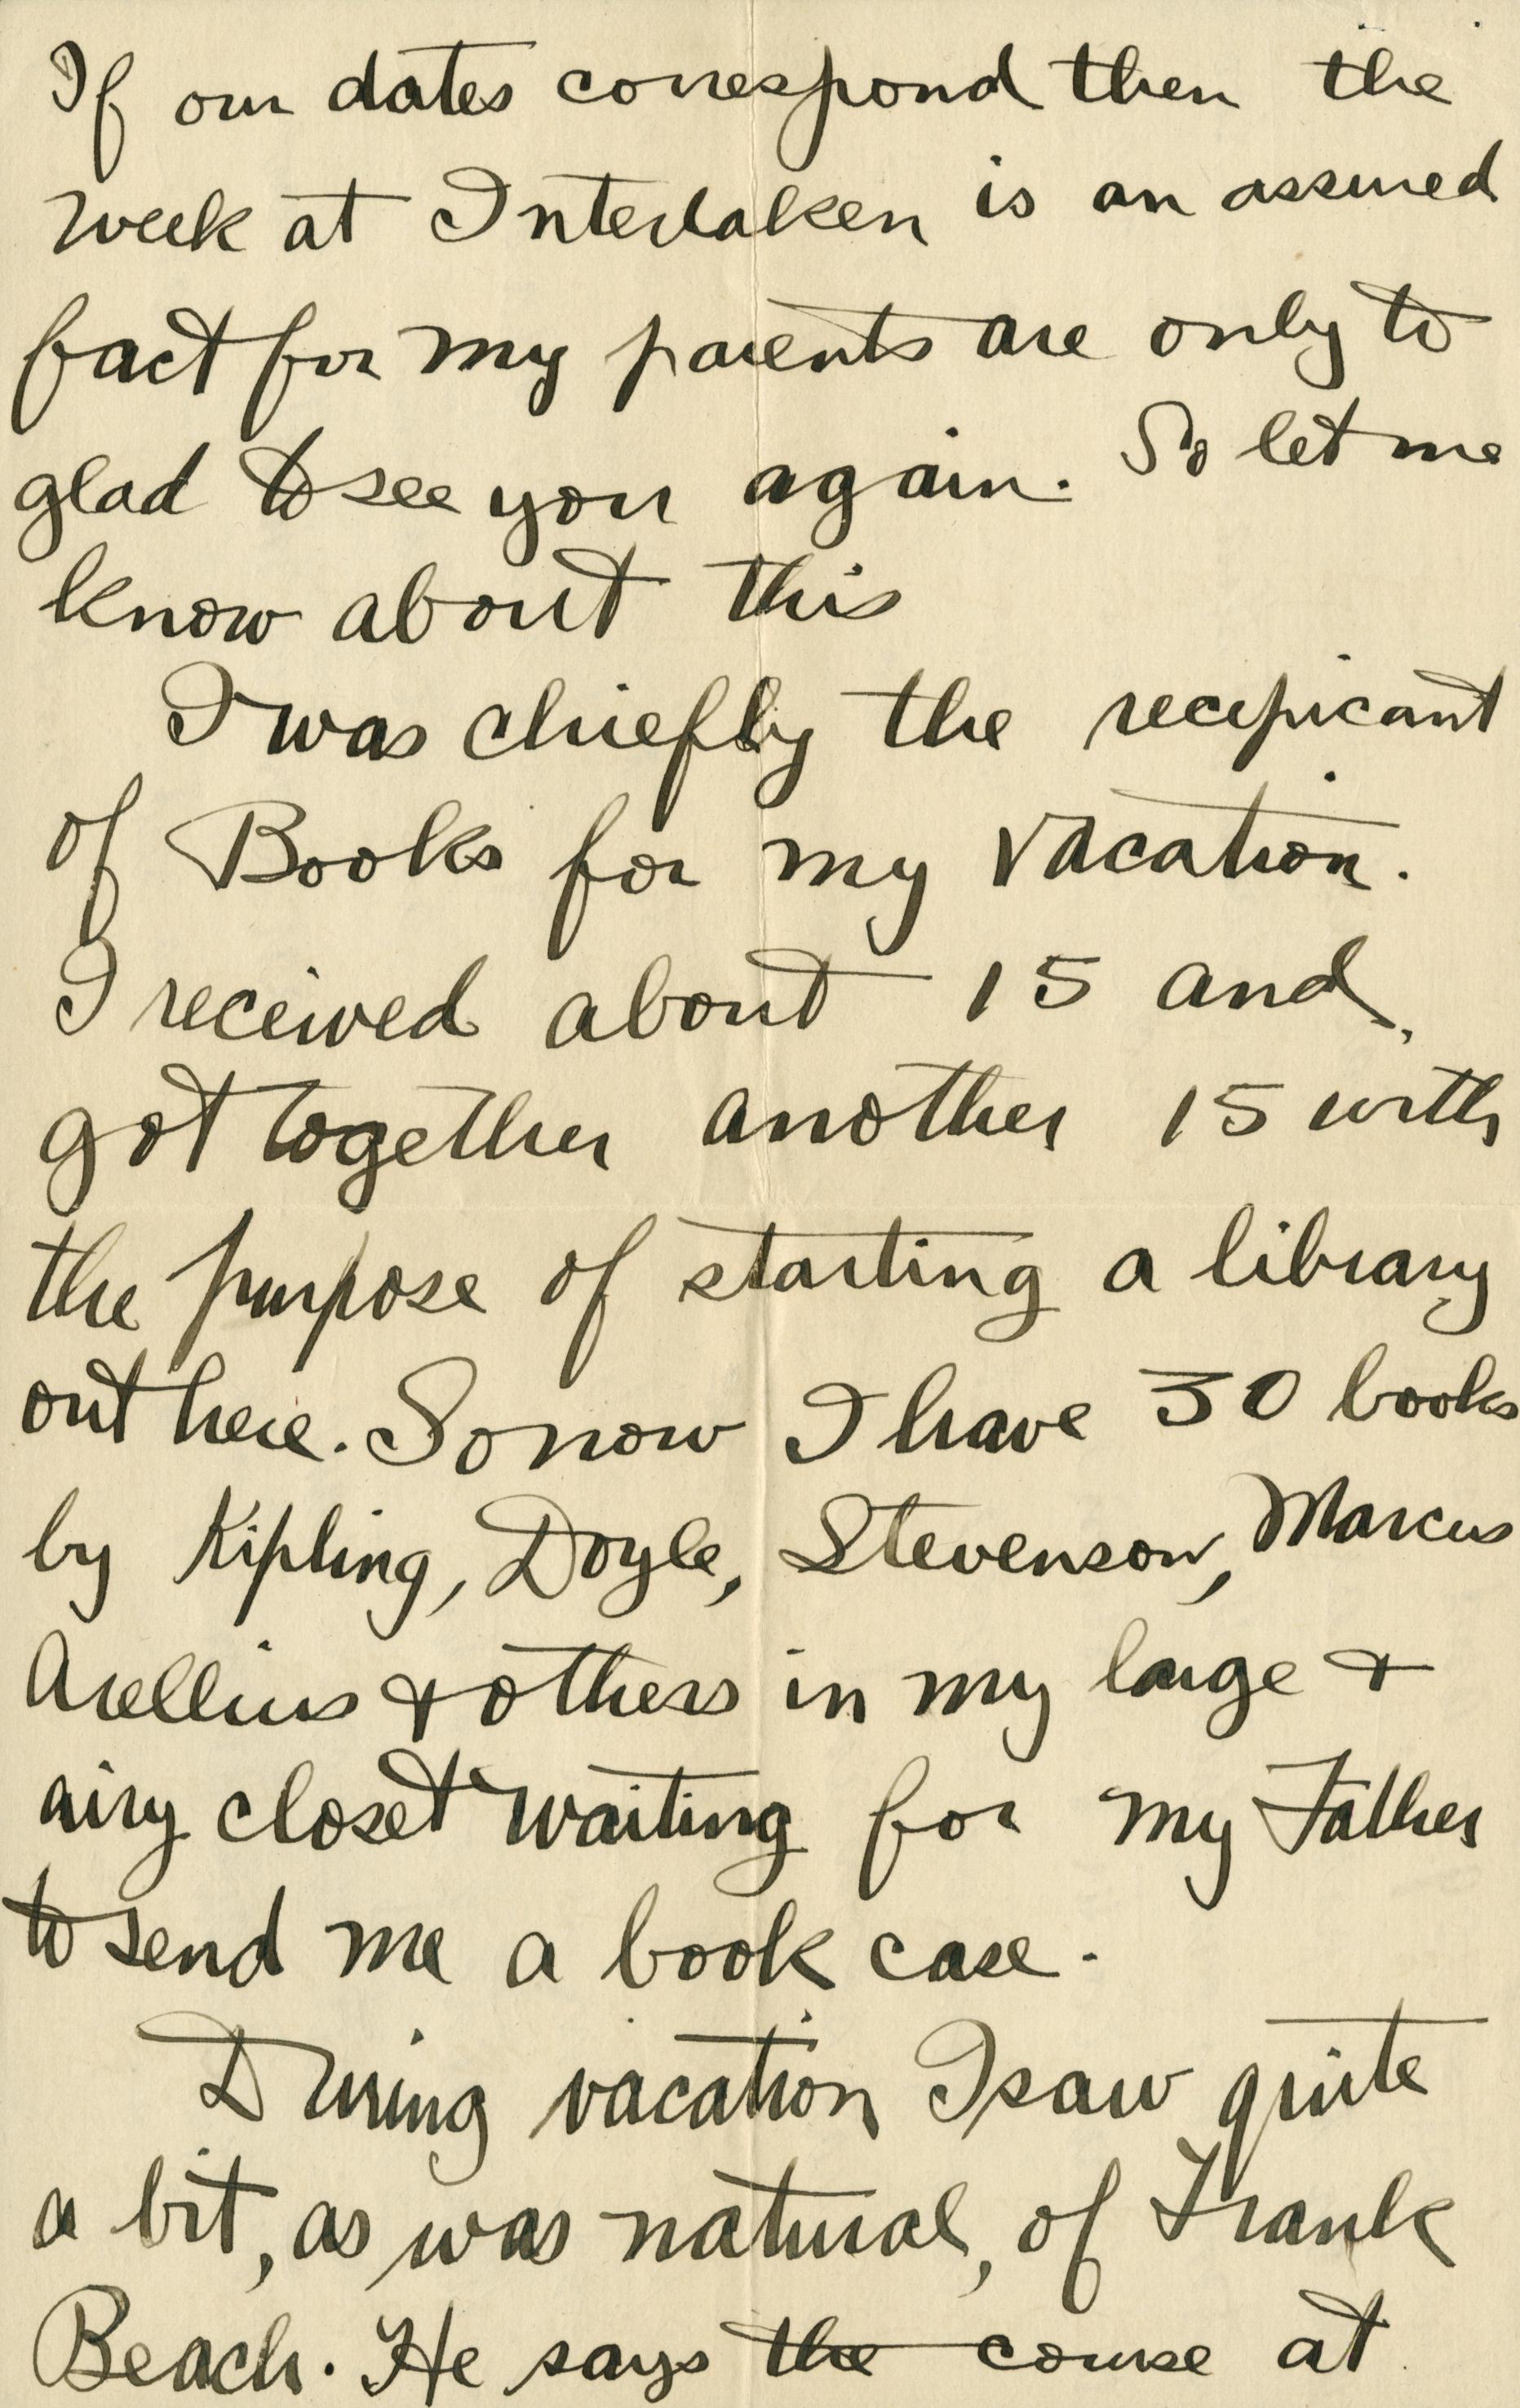 If our dates correspond then the
week at Interlaken is an assured
fact for my parents are only to
glad to see you again. So let me
know about this
I was chiefly the recipicant
of Books for my vacation.
I received about 15 and
got together another 15 with
the purpose of starting a library
out here. So now I have 30 books
by Kipling, Doyle, Stevenson, Marcus
Arellius & others in my large &
airy closet waiting for my Father
to send me a book case.
During vacation I saw quite
a bit, as was natural, of Frank
Beach. He says the course at